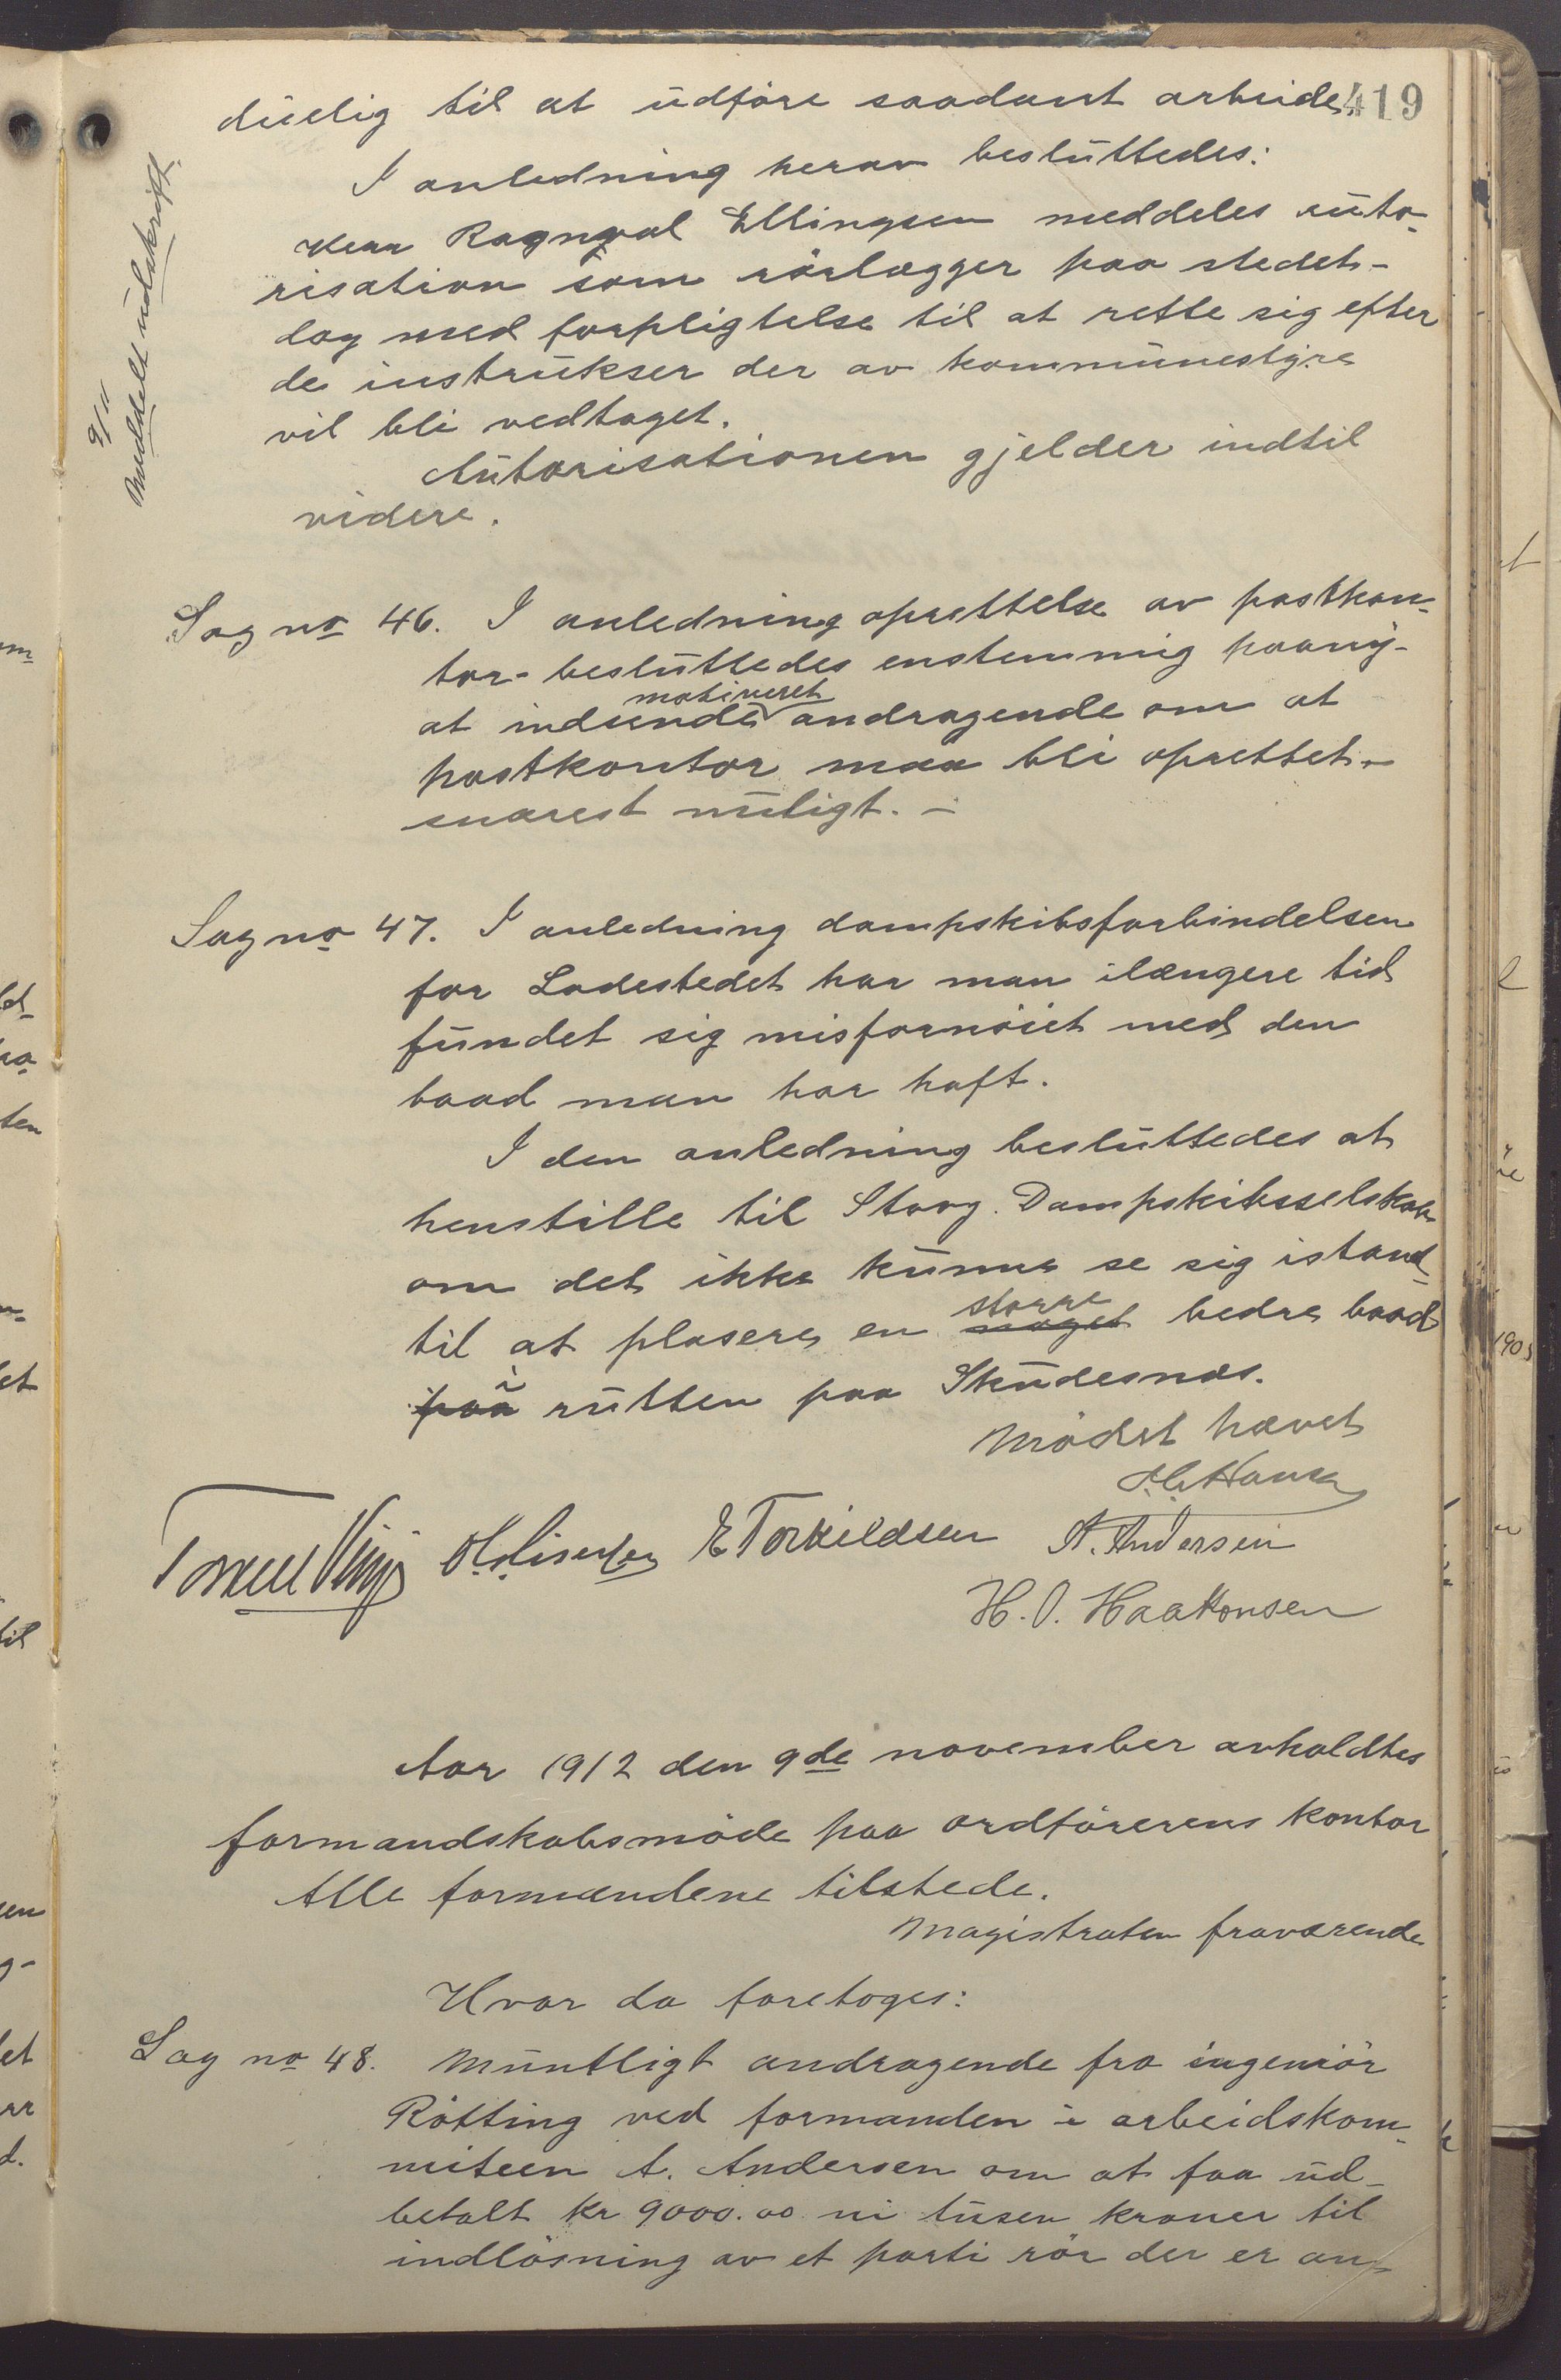 419
duelig til at udføre saadant arbeide.
I anledning herav besluttedes:
Herr Ragnval Ellingsen meddeles auto-
risation som rørlægger paa stedet
dog med forpligtelse til at rette sig efter
de instrukser der av kommunestyre
vil bli vedtaget.
Autorisationen gjelder indtil
videre.
9/11
Meddelt utskrift.
Sag no 46. I anledning oprettelse av postkon-
tor - besluttedes enstemmig paany -
motiveret
at indsende andragende om at
postkontor maa bli oprettet -
snarest muligt. -
Sag no 47. I anledning dampskibsforbindelsen
for Ladestedet har man ilængere tid
fundet sig misfornøiet med den
baad man har haft.
I den anledning besluttedes at
henstille til Stavg. Dampskibsselskab
om det ikke kunne se sig istand
større
til at plasere en noget bedre baad
i
paa rutten paa Skudesnæs.
Mødet hævet
E Torkildsen A. Andersen
H. O. Haakonsen
Aar 1912 den 9de november avholdtes
formandskabsmøde paa ordførerens kontor
Alle formændene tilstede.
Magistraten fraværende
Hvor da foretoges:
Sag no 48. Muntligt andragende fra ingeniør
Røtting ved formanden i arbeidskom-
miteen A. Andersen om at faa ud-
betalt kr 9000.00 ni tusen kroner til
indløsning av et parti rør der er an-